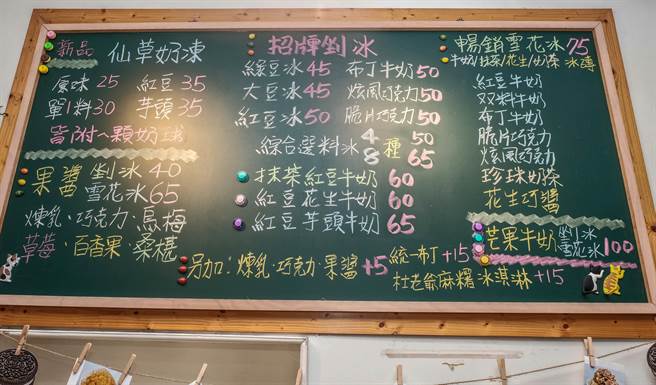 新品 仙草奶凍
原味25 紅豆35
單1料30 芋頭35
皆附一顆奶球
果醬 剉冰40
雪花冰65
煉乳·巧克力·烏梅
草莓·百香果·桑椹
招牌剉冰
綠豆冰45 布丁牛奶50
大豆冰45 炫風巧克力50
紅豆冰50 脆片巧克力50
綜合選料冰 4種50
8種65
抹茶紅豆牛奶60
紅豆花生牛奶60
紅豆芋頭牛奶65
另加:煉乳·巧克力·果醬+5 統一布丁+15
杜老爺麻糬冰淇淋+15
暢銷雪花冰75
牛奶/抹茶/花生/奶茶 冰磚
紅豆牛奶
双料牛奶
布丁牛奶
脆片巧克力
炫風巧克力
珍珠奶茶
花生巧醬
芒果牛奶 剉冰 雪花冰100